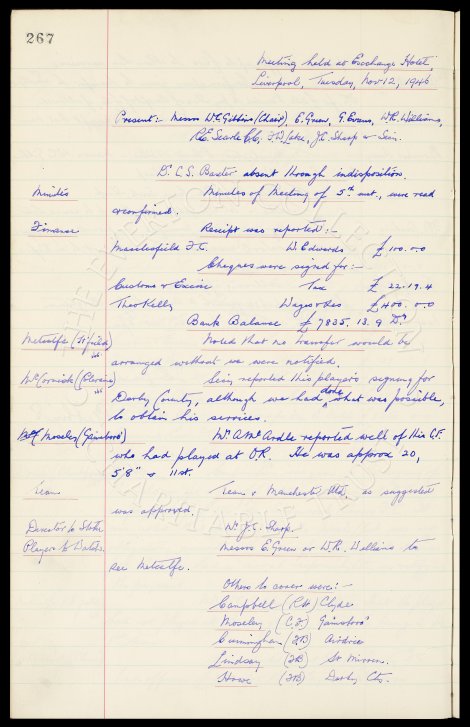 267
Meeting held at Exchange Hotel,
Liverpool, Tuesday, Nov 12, 1946
Present:- Messrs W.C. Gibbins (Chair), E. Green, G. Evans, W.R. Williams,
R.E. Searle T.W. Lake, J.C. Sharp & Secy.
Dr. C.S. Baxter absent through indisposition.
Minutes Minutes of Meeting of 5th inst., were read
& confirmed.
Finance Receipt was reported:-
Macclesfield F.C. W. Edwards £100.0.0
Cheques were signed for:-
Customs & Excise Tax £22.19.4
Theo Kelly Wages & Exes £400.0.0
Bank Balance £7835.13.9 Dr
Metcalfe Noted that no transfer would be
arranged without we were notified.
McCormick (Cliftonville) Secy reported this player's signing for
Derby County, although we had done what was possible,
to obtain his services.
Moseley (Gainsboro') Mr A McArdle reported well of this C.F.
who had played at O.R. He was approx 20,
5'8" & 11st.
Team Team v Manchester Utd, as suggested
was approved.
Director to Stoke Mr. J.C. Sharp.
Player to Watch. Messrs E. Green or W.R. Williams to
see Metcalfe.
Others to cover were:-
Campbell (R.H) Clyde
Moseley (C.F.) Gainsboro'
Cunningham (FB) Airdrie
Lindsay (FB) St Mirren.
Howe (FB) Derby Cty.
THE EVERTON COLLECTION
CHARITABLE TRUST